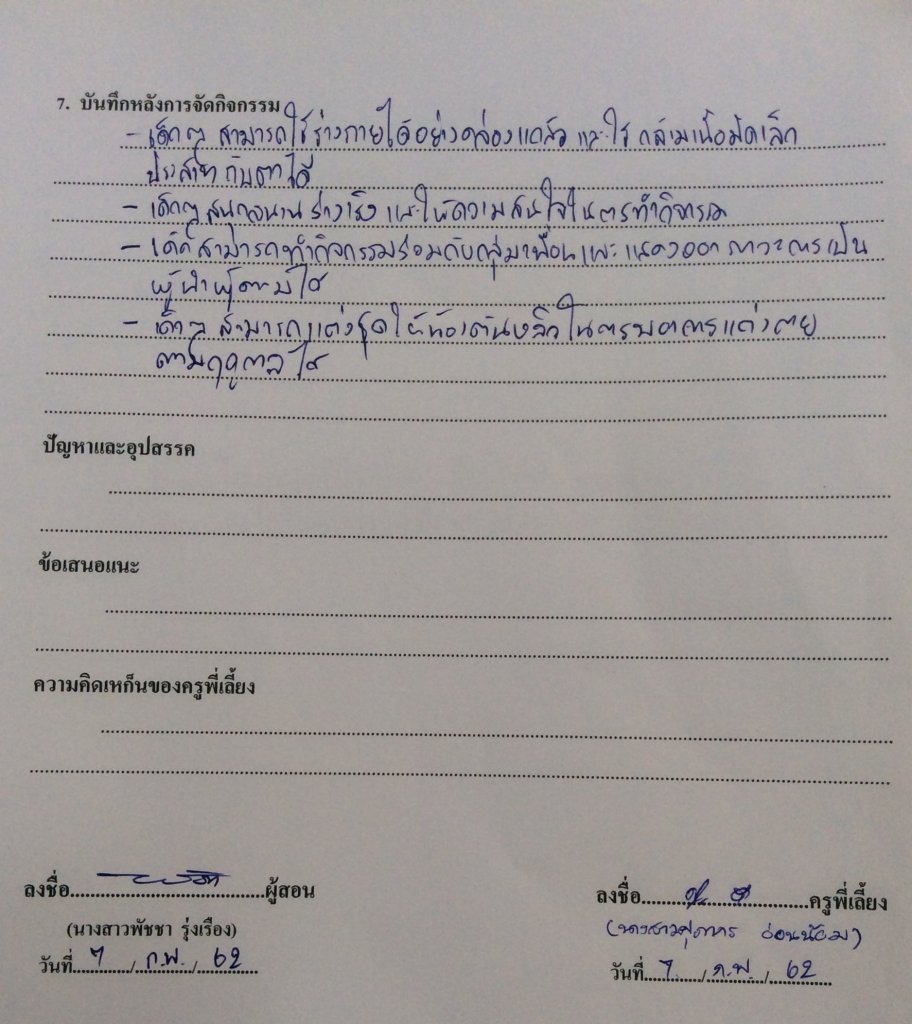 7. บันทึกหลังการจัดกิจกรรม
- เด็กๆ สามารถใช้ร่างกายได้อย่างคล่องแคล่ว และใช้ กล้ามเนื้อมัดเล็ก
ประสาท กับตาได้
- เด็กๆ สนุกสนาน ร่าเริง และให้ความสนใจในการทำกิจกรรม
- เด็กๆ สามารถทำกิจกรรมร่วมกับกลุ่มเพื่อนและ แสดงออก ภาวะการเป็น
ผู้นำผู้ตามได้
- เด็กๆ สามารถแต่งชุดให้น้อง ในการ การแต่งกาย
ตามฤดูกาลได้
ปัญหาและอุปสรรค
ข้อเสนอแนะ
ความคิดเหก็นของครูพี่เลี้ยง
ลงชื่อ..............................ผู้สอน
(นางสาวพัชชา รุ่งเรือง)
วันที่ 7 / ก.พ. / 62
ลงชื่อ..............................ครูพี่เลี้ยง
(นางสาว อ่อนน้อม)
วันที่ 7 / ก.พ. / 62